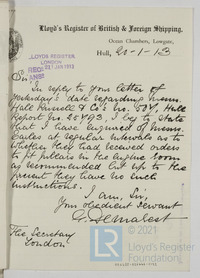 Lloyd's Register of British & Foreign Shipping,
Ocean Chambers, Lowgate,
Hull, 20-1-13
LLOYDS REGISTER
LONDON
21 JAN 1913
Sir,
In reply to your letter of
yesterday's date regarding Messrs
Hull Report No. 25793, I beg to state
that I have enquired of Messrs
at regular intervals as to
whether they had received orders
to fit pillars in the engine room
as recommended but up to the
present they have no such
instructions.
I am, Sir,
Your obedient servant
The Secretary
London
© 2021
Lloyd's Register
Foundation